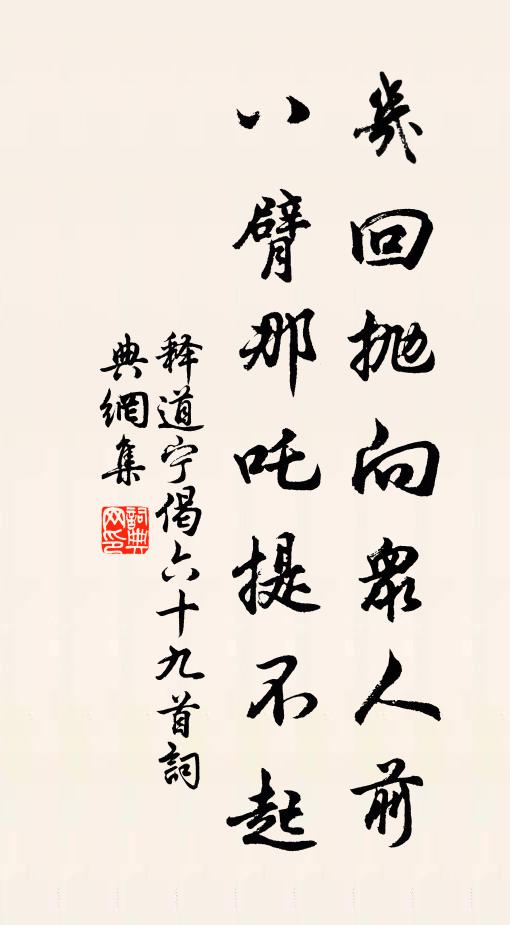 幾回抛向眾人前
八臂那吒提不起
释道宁偈六十九首詞
典網集
詞典
网印